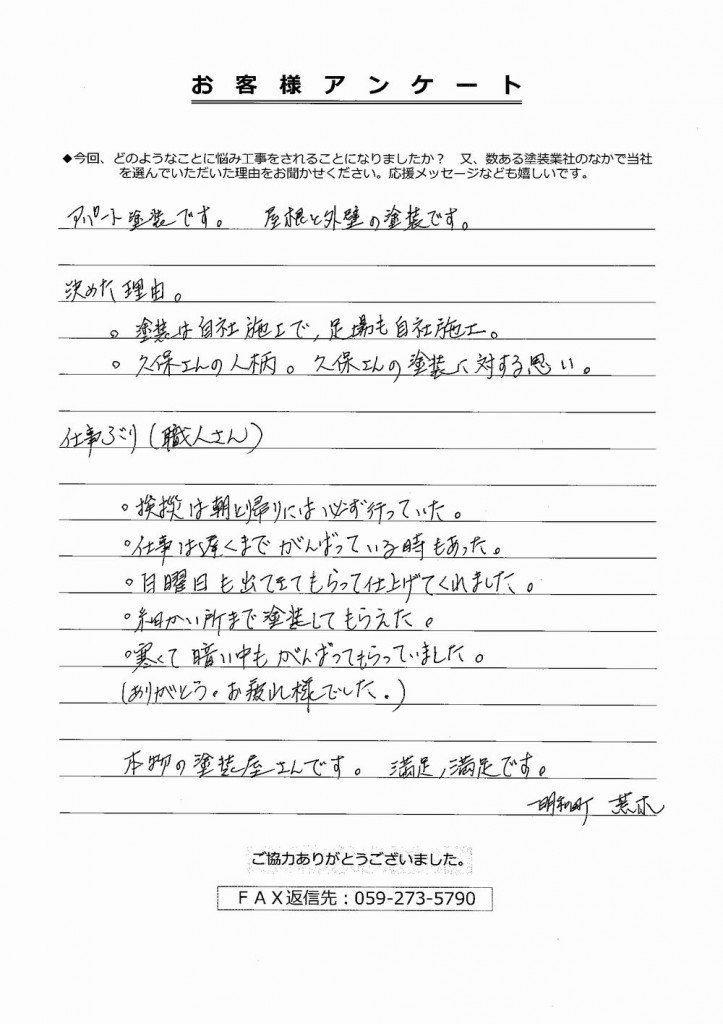 お客様アンケート
◆今回、どのようなことに悩み工事をされることになりましたか？　又、数ある塗装業社のなかで当社
を選んでいただいた理由をお聞かせください。応援メッセージなども嬉しいです。
アパート塗装です。　屋根と外壁の塗装です。
決めた理由。
。塗装は自社施工で,足場も自社施工。
。久保さんの人柄。久保さんの塗装に対する思い。
仕事ぶり(職人さん)
。挨拶は朝と帰りには必ず行っていた。
。仕事は遅くまでがんばっている時もあった。
。日曜日も出てきてもらって仕上げてくれました。
。細かい所まで塗装してもらえた。
。寒くて暗い中もがんばってもらっていました。
(ありがとう。お疲れ様でした.)
本物の塗装屋さんです。　満足,満足です。
明和町　荒木
ご協力ありがとうございました。
ＦＡＸ返信先：059-273-5790